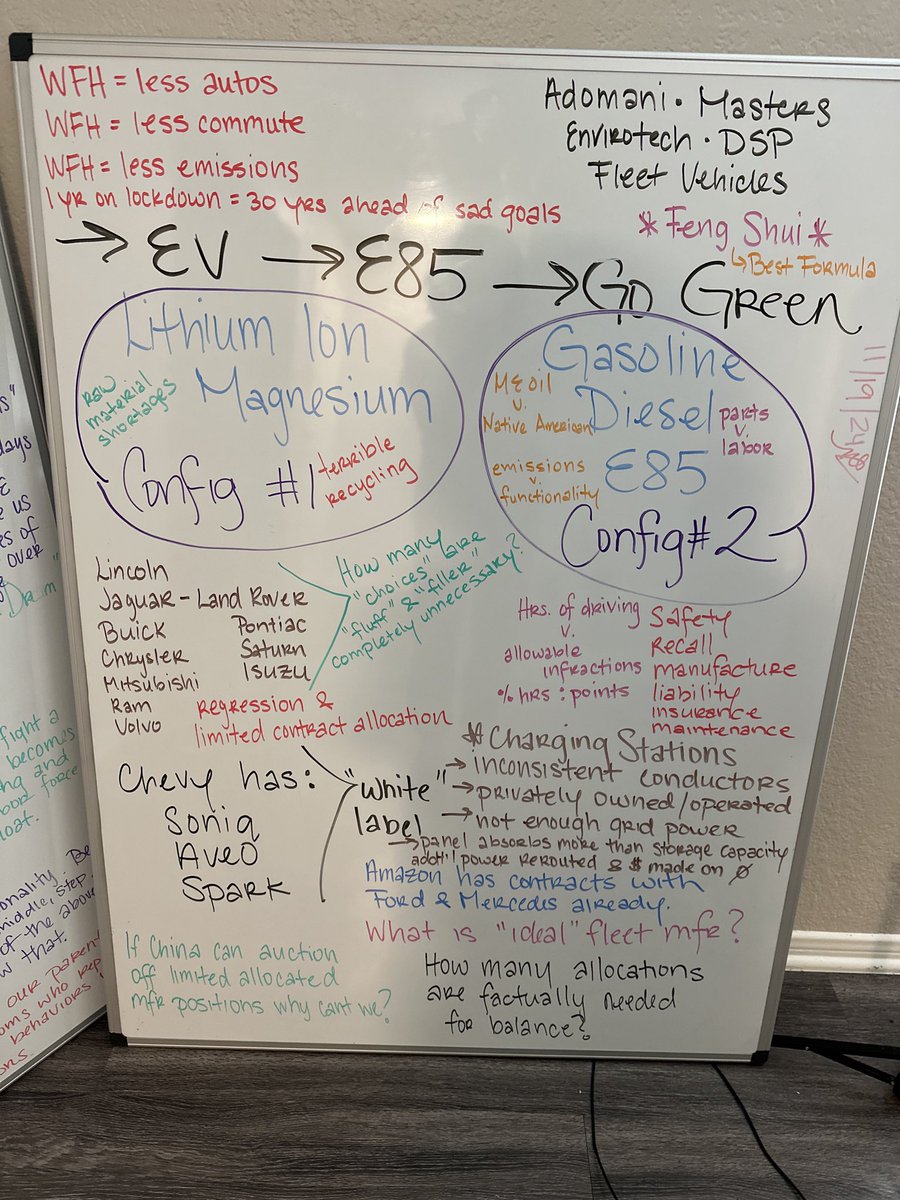 WFH = less autos
WFH = less commute
WFH = less emissions
1 yr on lockdown = 30 yrs ahead of sad goals
Adomani • Masters
Envirotech • DSP
Fleet Vehicles
* Feng Shui *
↳ Best Formula
→ EV → E85 → Go Green
11/19/24
Lithium Ion
Magnesium
raw
material
shortages
Config #1
terrible
recycling
Gasoline
Diesel
E85
ME oil
v.
Native American
parts
v.
labor
emissions
v.
functionality
Config #2
Lincoln
Jaguar - Land Rover
Buick
Chrysler
Mitsubishi
Ram
Volvo
Pontiac
Saturn
Isuzu
How many
"choices" are
"fluff" & "filler"
completely unnecessary?
regression &
limited contract allocation
Hrs. of driving
v.
allowable
infractions
% hrs : points
Safety
Recall
manufacture
liability
insurance
maintenance
Chevy has:
Soniq
Aveo
Spark
"white"
label
# Charging Stations
→ inconsistent conductors
→ privately owned/operated
→ not enough grid power
→ panel absorbs more than storage capacity
addt'l power rerouted & $ made on Ø
Amazon has contracts with
Ford & Mercedes already.
What is "ideal" fleet mfr?
If China can auction
off limited allocated
mfr positions why cant we?
How many allocations
are factually needed
for balance?
days
us
es of
over
fight a
becomes
ng and
bor force
loat.
onality.
middle, step
of the above
w that.
our parent
oms who rep
behaviors
ons.